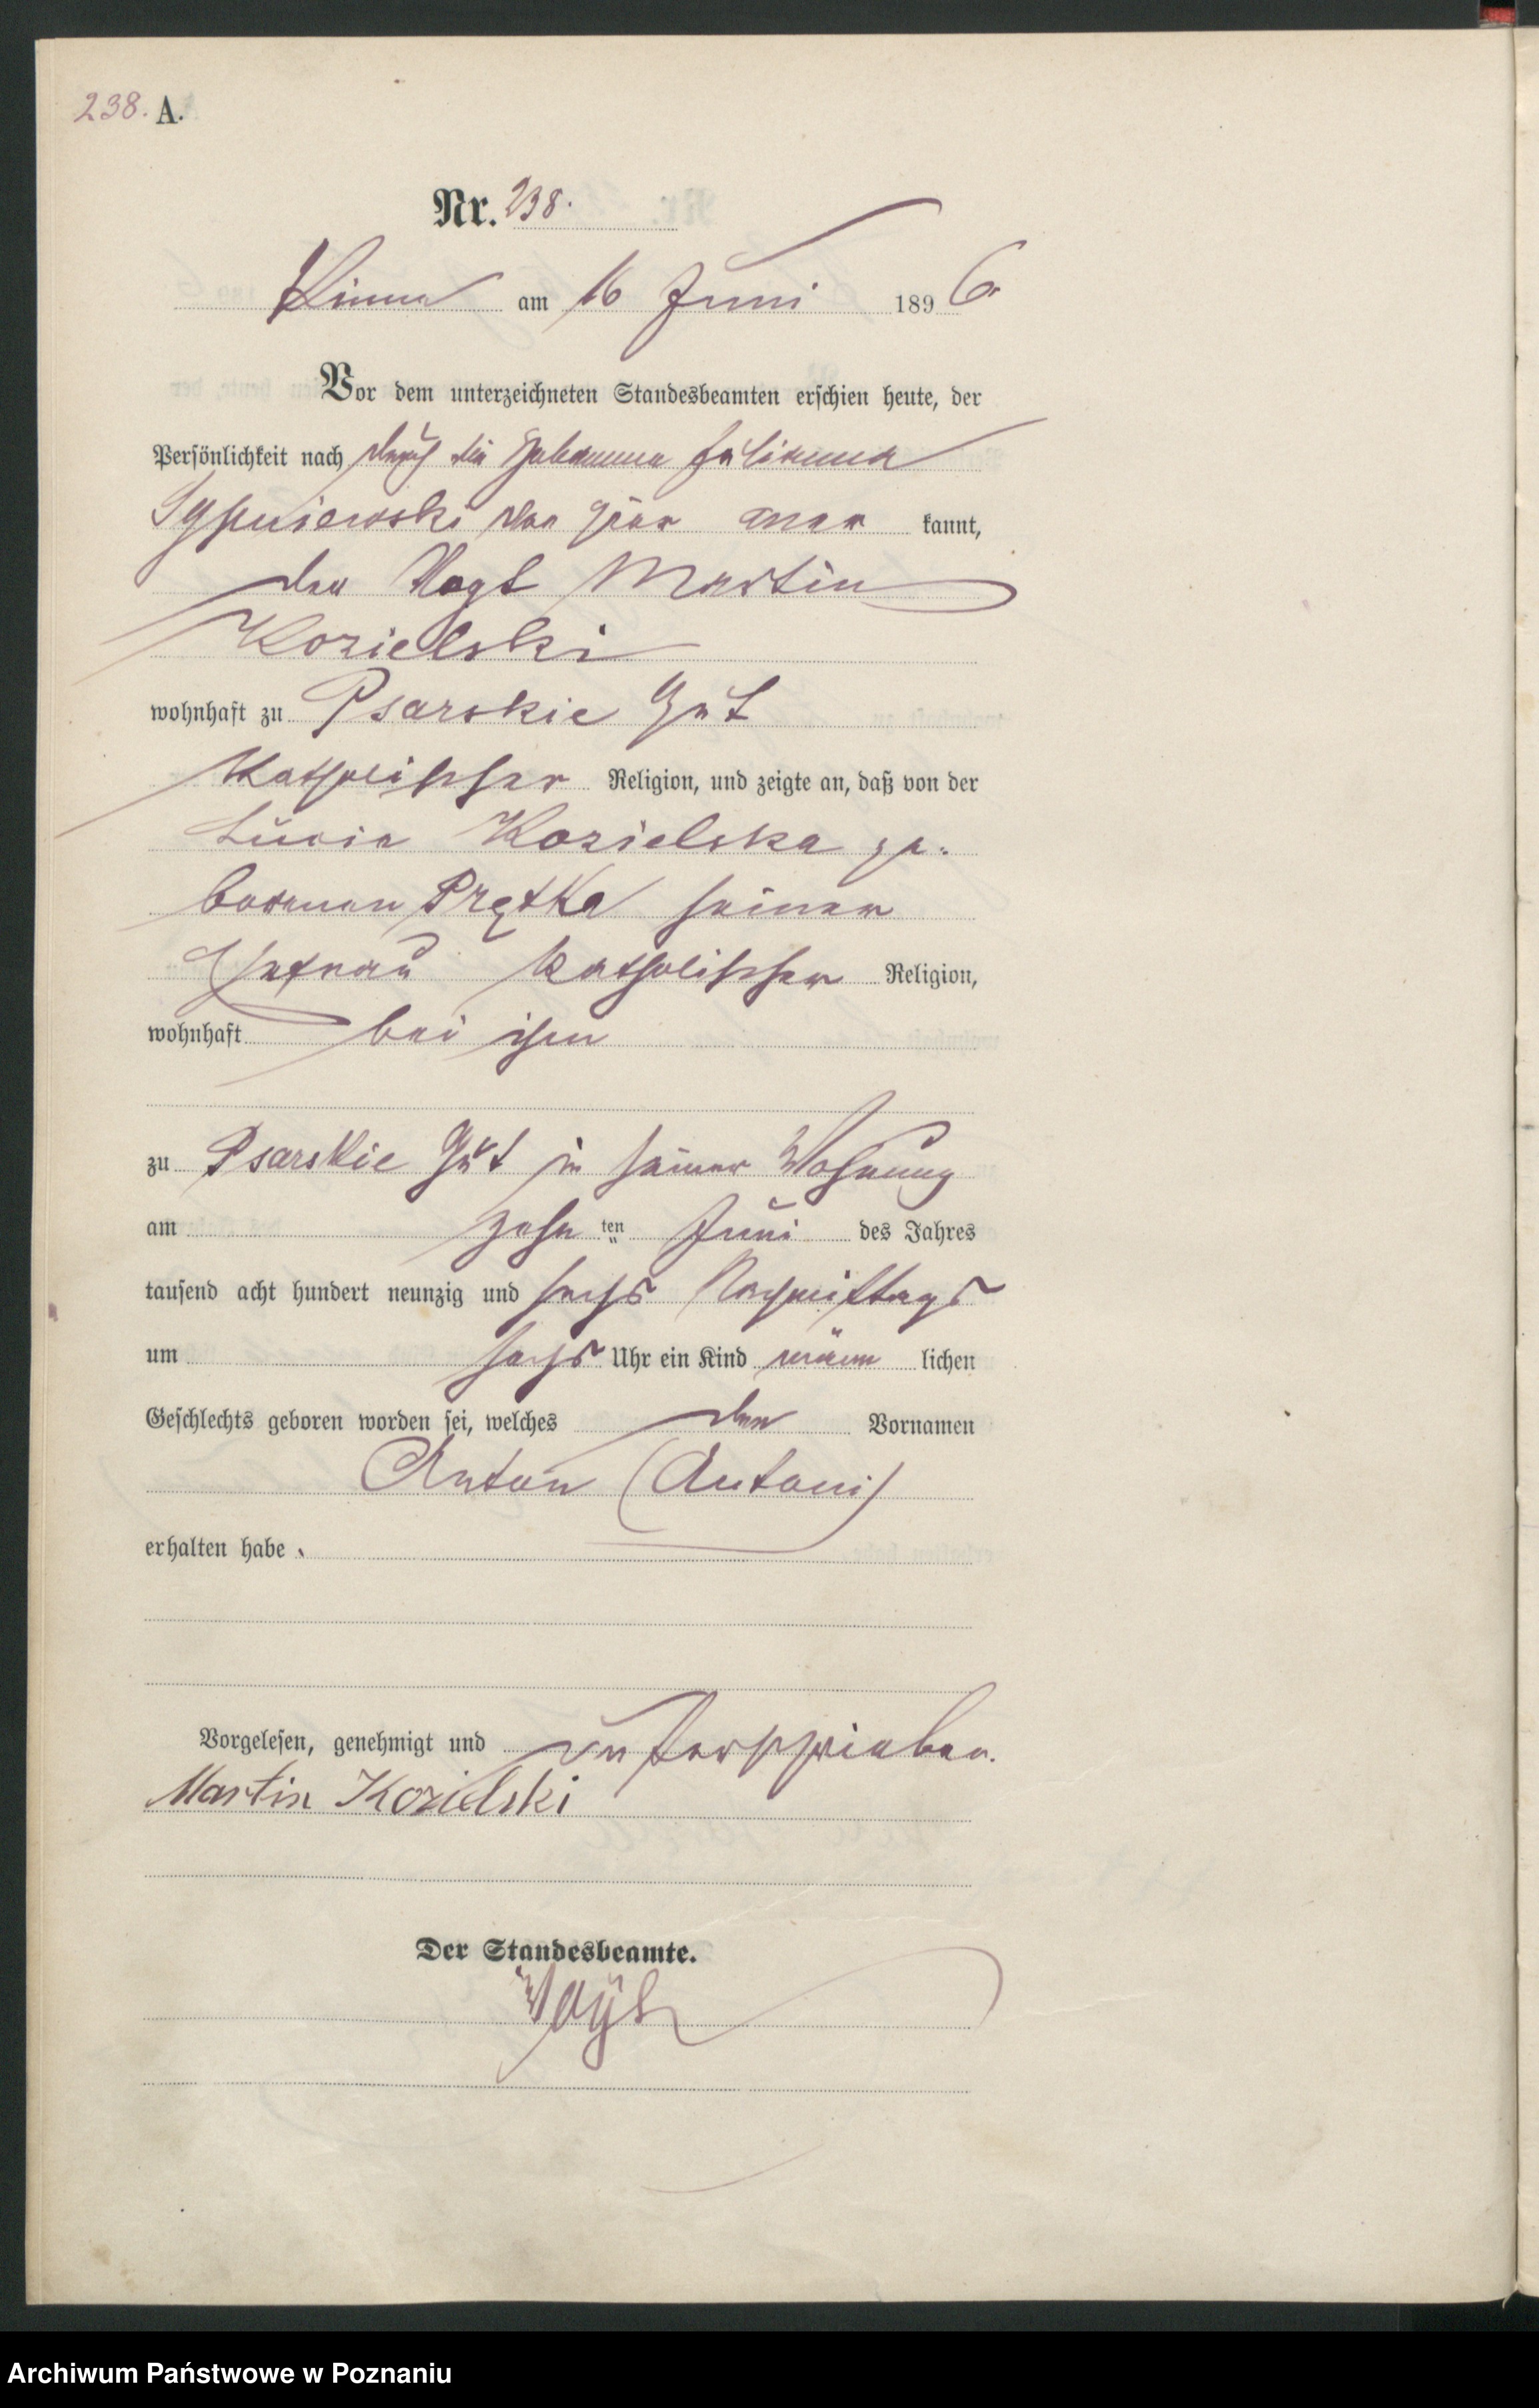 238. A.
Nr. 238.
Xions am 16 Juni 1896.
Vor dem unterzeichneten Standesbeamten erschien heute, der
Persönlichkeit nach durch die Hebamme Julianna
Sypniewski von hier aner kannt,
der Vogt Martin
Kozielski
wohnhaft zu Psarskie Gut
katholischer Religion, und zeigte an, daß von der
Lucia Kozielska ge-
borenen Prętka seiner
Ehefrau katholischer Religion,
wohnhaft bei ihm
zu Psarskie Gut in seiner Wohnung
am zehn ten Juni des Jahres
tausend acht hundert neunzig und sechs Nachmittags
um sechs Uhr ein Kind männ lichen
Geschlechts geboren worden sei, welches den Vornamen
Anton (Antoni)
erhalten habe.
Vorgelesen, genehmigt und unterschrieben.
Martin Kozielski
Der Standesbeamte.
Archiwum Państwowe w Poznaniu